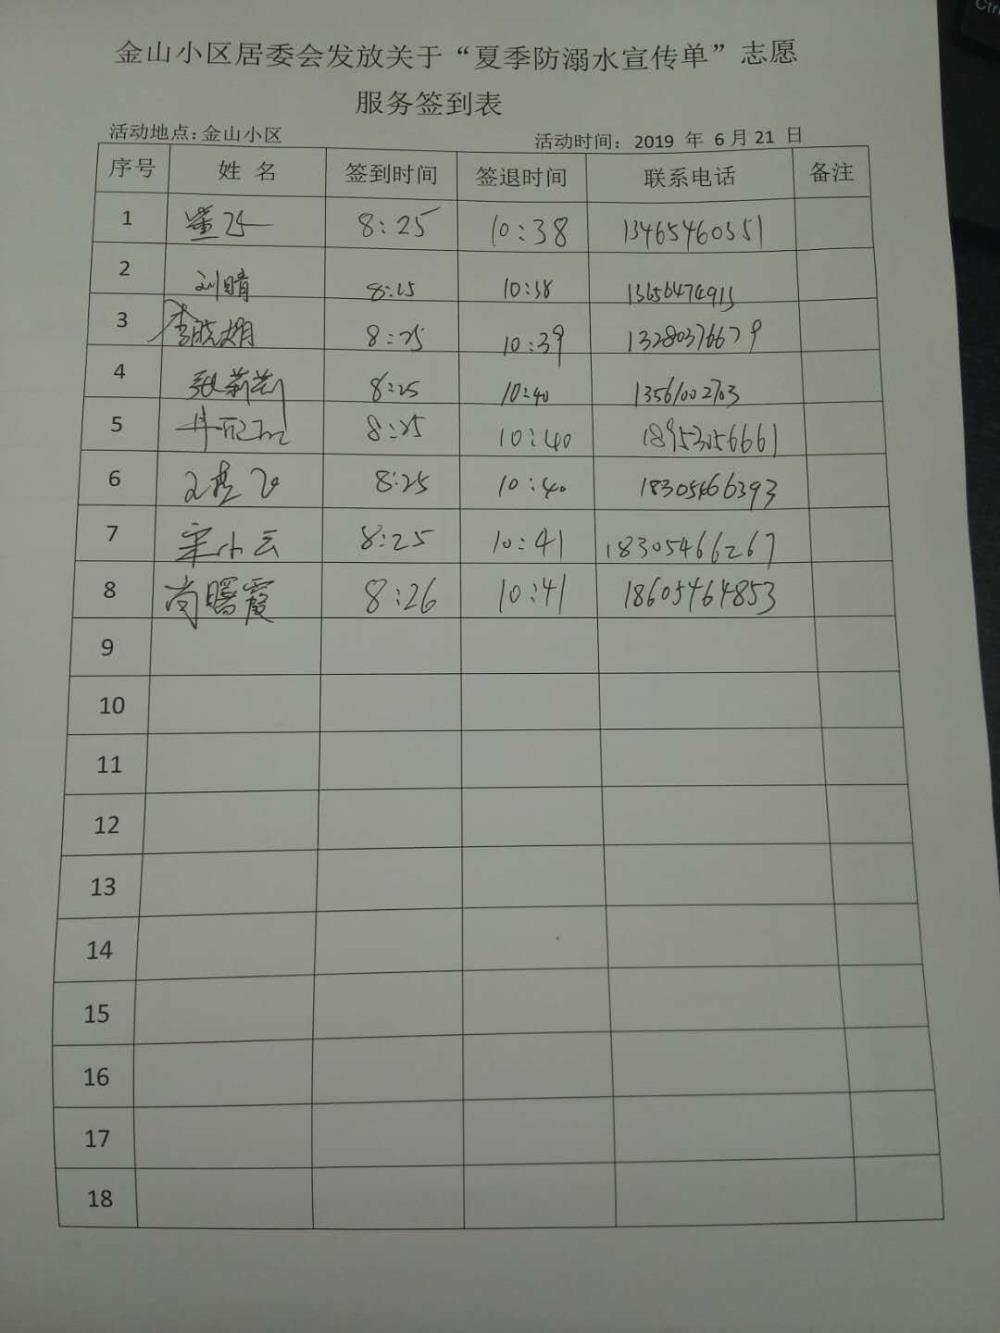 金山小区居委会发放关于“夏季防溺水宣传单”志愿
服务签到表
活动地点:金山小区 活动时间: 2019 年 6月21 日
序号 姓 名 签到时间 签退时间 联系电话 备注
1 8:25 10:38 13465460551
2 刘晴 8:25 10:38
3 李晓娟 8:25 10:39 13280376679
4 张莉莉 8:25 10:40 13561002703
5 8:25 10:40 18953056661
6 8:25 10:40 18305466393
7 宋小云 8:25 10:41 18305466267
8 尚曙霞 8:26 10:41 18605464853
9
10
11
12
13
14
15
16
17
18